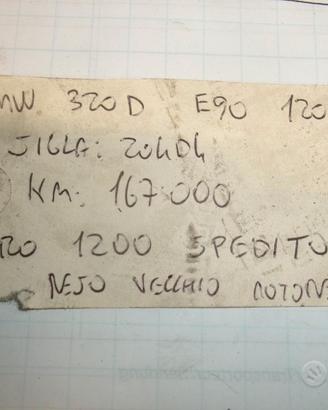 MW 320D E90 120
SIGLA: 204D4
KM: 167.000
RO 1200 SPEDITO
RESO VECCHIO MOTORE